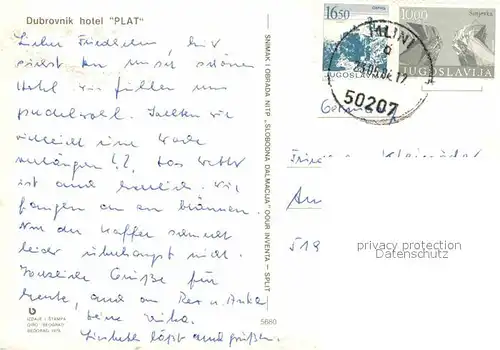 Dubrovnik hotel "PLAT"
Lieber Friedhelm, hier
siehst Du unser schönes
Hotel wir fühlen uns
pudelwohl. Sollten wir
vielleicht eine Woche
anhängen?? Das Wetter
ist auch herrlich. Wir
fangen an zu bräunen.
Nur der Kaffee schmeckt
leider überhaupt nicht.
Herzliche Grüße für
heute, auch an
Deine
Liesbeth läßt auch grüßen.
IZDAJE I ŠTAMPA
GIRO BEOGRAD
BEOGRAD 1979
5680
SNIMAK I OBRADA NITP „SLOBODNA DALMACIJA" OOUR INVENTA — SPLIT
16.50
JUGOSLAVIJA
1000
JUGOSLAVIJA
MLINI
50207
Germany
Am
519
privacy protection
Datenschutz